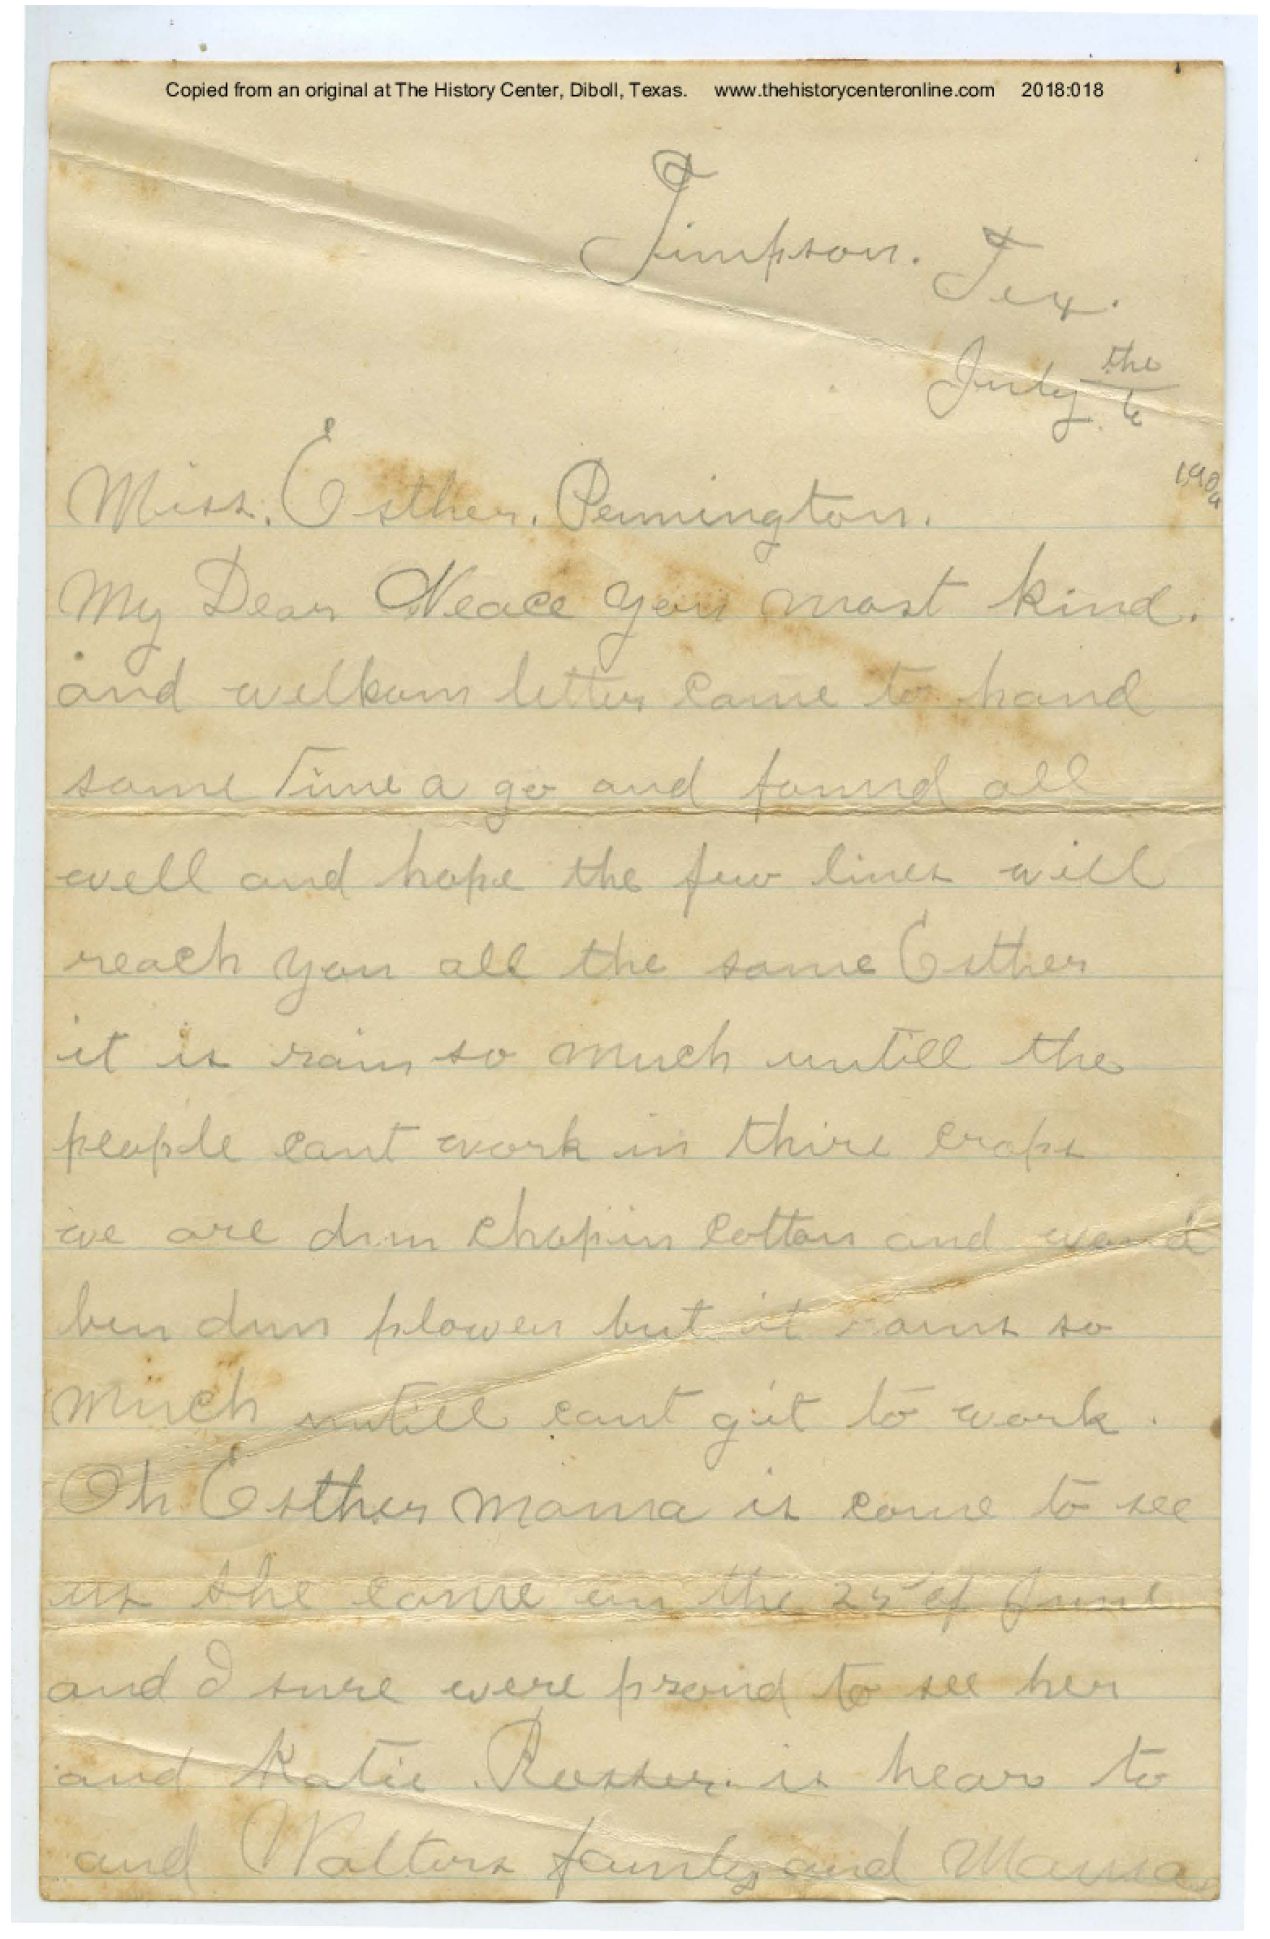 Copied from an original at The History Center, Diboll, Texas. www.thehistorycenteronline.com 2018:018
Timpson. Tex.
July the 6
190
Miss. Esther. Pennington.
My Dear Neace you most kind.
and welkum letter came to hand
some Time a go and found all
well and hope the few lines will
reach you all the same Esther
it is rain so much untill the
people cant work in thire crops
we are dun chopin cotton and woud
ben dun plowen but it rains so
much untill cant git to work.
Oh Esther mama is come to see
us she come on the 25 of June
and I sure were proud to see her
and Katie Rosser. is hear to
and Walters family and Mama